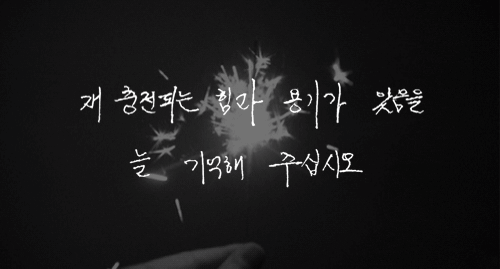 재 충전되는 힘과 용기가 있음을
늘 기억해 주십시오